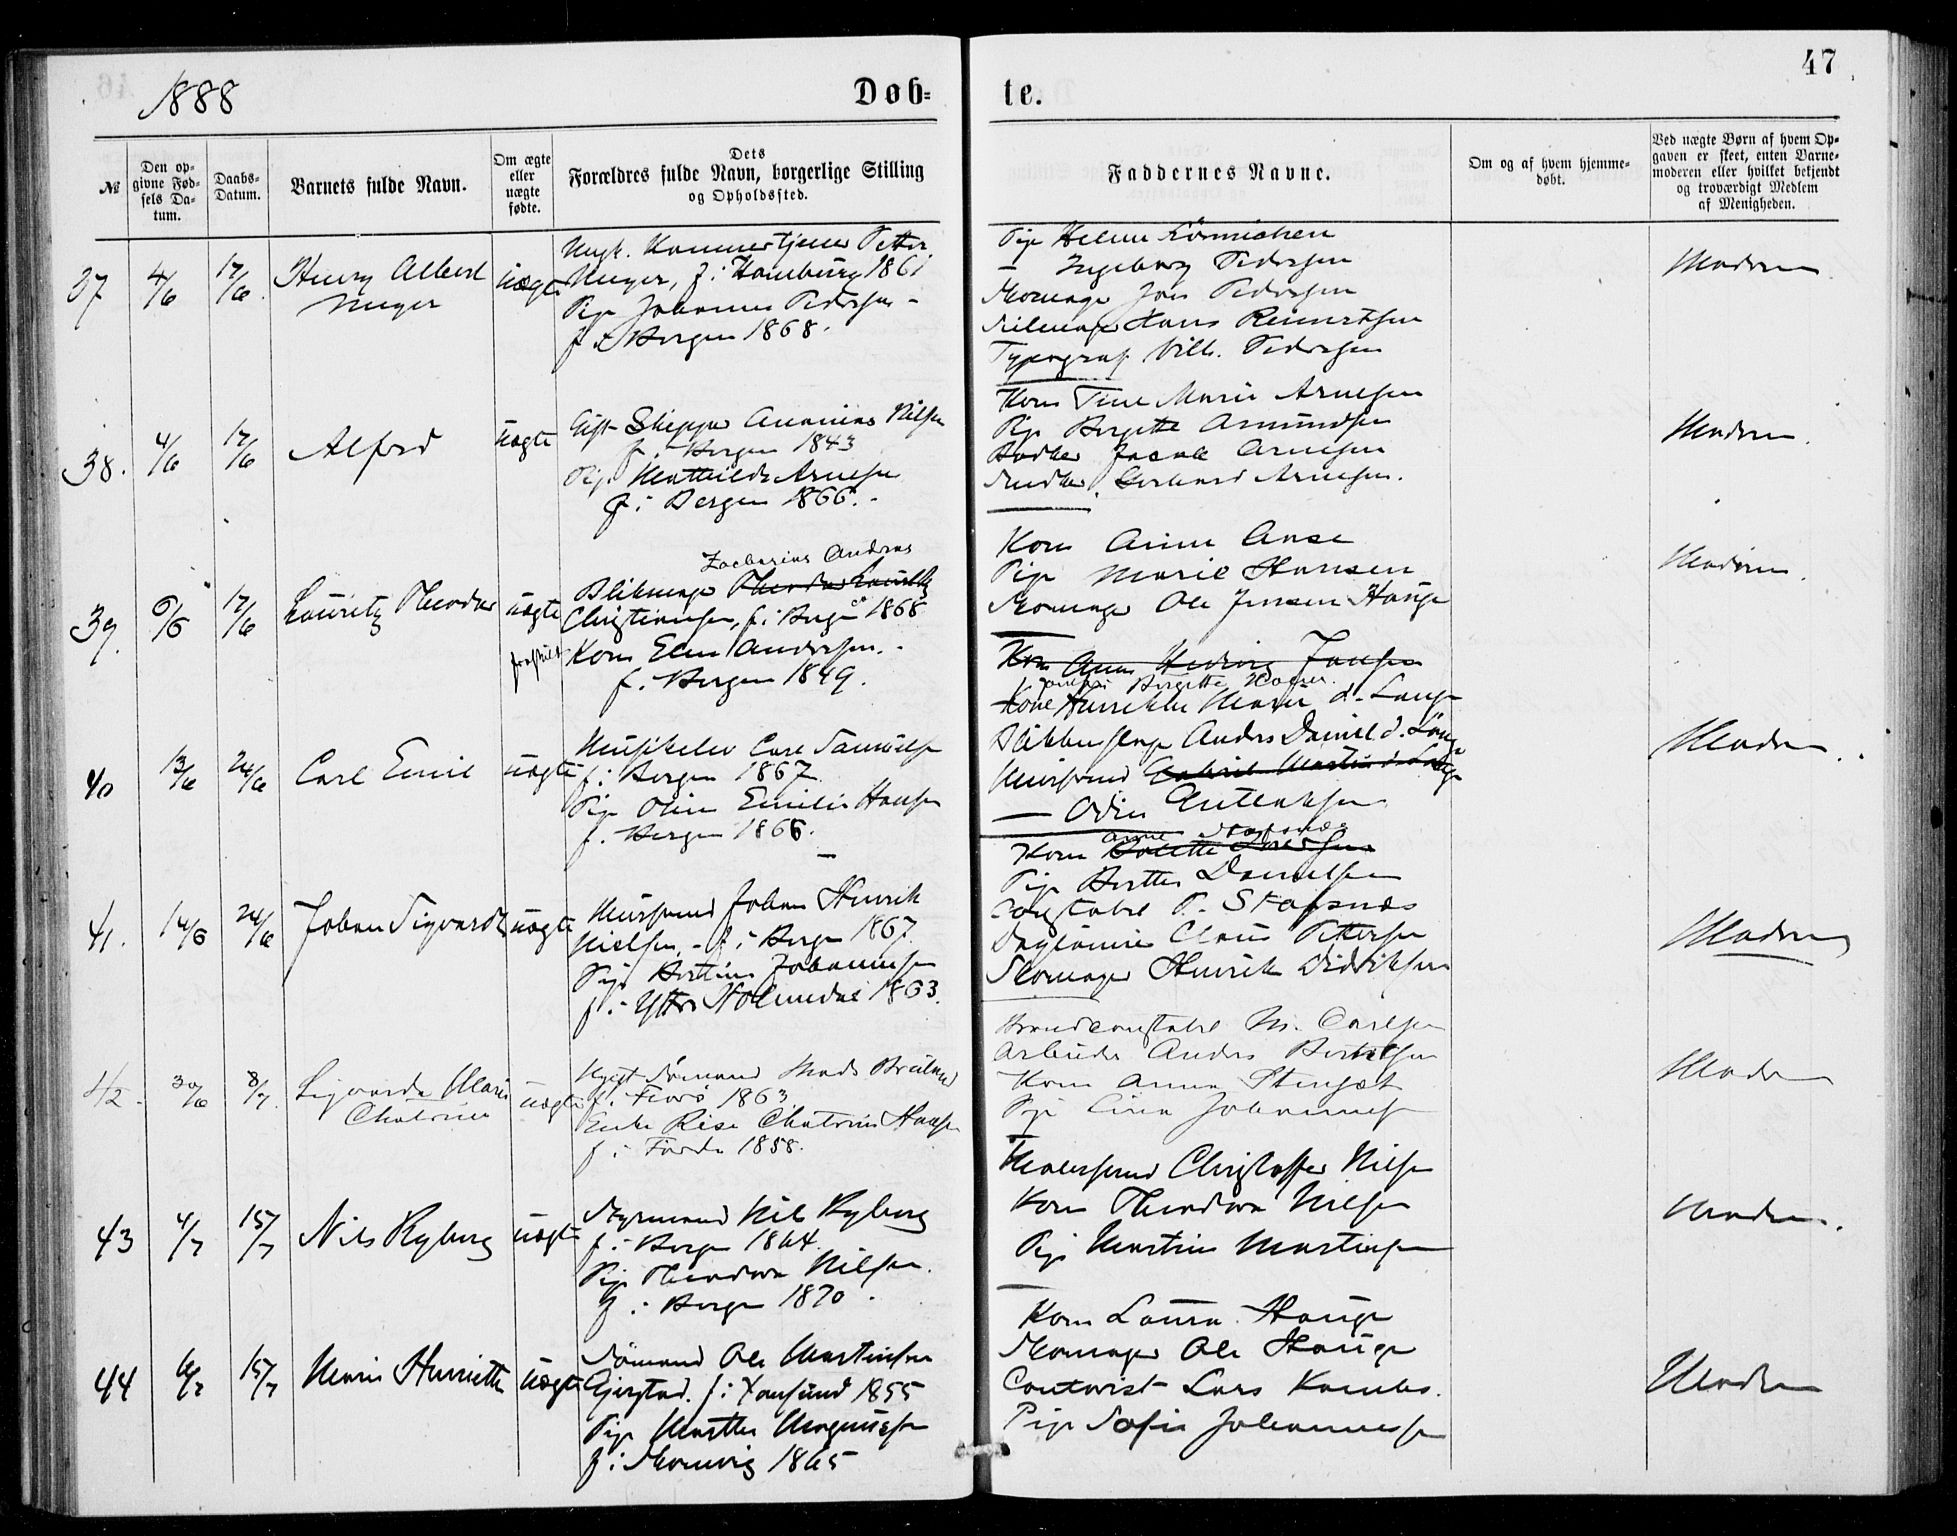 1888
Døb-
te.
47
№
Den op-
givne Fød-
sels Da-
tum.
Daabs-
Datum.
Barnets fulde Navn.
Om ægte
eller
uægte
fødte.
Dets
Forældres fulde Navn, borgerlige Stilling
og Opholdssted.
Faddernes Navne.
Om og af hvem hjemme-
døbt.
Ved uægte Børn af hvem Op-
gaven er skeet, enten Barne-
moderen eller hvilket bekjendt
og troværdigt Medlem
af Menigheden.
37
4/6
17/6
Henry Albert
Meyer
uægte
Ungk. Kammertjener Petter
Meyer, f. i Hamburg 1861
Pige Johanne Pedersen
f. i Bergen 1868.
Pige Helene
Ingeborg Pedersen
Skomager Jens Pedersen
Seilmager Hans Reinertsen
Typograf Vilh. Pedersen
Moderen
38.
4/6
17/6
Alfred
uægte
Gift Skipper Ananias Nilsen
f. i Bergen 1843
Pige Mathilde Arnesen
f. i Bergen 1866.
Kone Tine Marie Arnesen
Pige Bergitte Amundsen
Bødker Jacob Arnesen
Gerhard Arnesen.
Moderen.
39.
6/6
17/6
Lauritz Theodor
uægte
fraskilt
Zacharias Andreas
Blikmager Theodor Lauritz
Christiansen, f. i Bergen 1868
Kone Elen Andersen.
f. i Bergen 1849.
Kone Anne Aase
Pige Marie Hansen
Skomager Ole Jensen Hauge
Moderen.
40
13/6
24/6
Carl Emil
uægte
Musikelev Carl Samuelsen
f. i Bergen 1867
Pige Oline Emilie Hansen
f. i Bergen 1866.
Kone Anne Hedvig Jansen
Birgitte
Kone Henrikke Marie d. Lange
Anders Daniel d. Lange
Murersvend Gabriel Martin d. Lange
— Odin
Moderen.
41.
14/6
24/6
Johan Sigvard
uægte
Murersvend Johan Henrik
Nielsen, f. i Bergen 1867.
Pige Bertine Johannesen
f. i Ytre Holmedal 1863.
Anne Stafsnæs
Kone
Pige Berthe Danielsen
Constabel P. Stafsnæs
Claus Pettersen
Skomager Henrik Didriksen
Moderen
42.
30/6
8/7
Sigvarda Marie
Chatrine
uægte
Ugift Sømand Mads
f. i 1863
Enke Chatrine Hansen
f. i Førde 1858.
Brandconstabel M. Carlsen
Arbeider Anders Bertelsen
Kone Anna
Pige Johannesen
Moderen
43
4/7
15/7
Nils Ryberg
uægte
Styrmand Nils Ryberg
f. i Bergen 1864.
Pige Theodora Nilsen.
f. i Bergen 1870.
Malersvend Christoffer Nilsen
Kone Theodora Nilsen
Pige Martine Martinsen
Moderen.
44
15/7
Marie Henriette
uægte
Sømand Ole Martinsen
Gjerstad. f. i 1855
Pige Marthe Magnusen
f. i 1865
Kone Laura Hauge
Skomager Ole Hauge
Contorist Lars
Pige Sofie Johannessen
Moderen